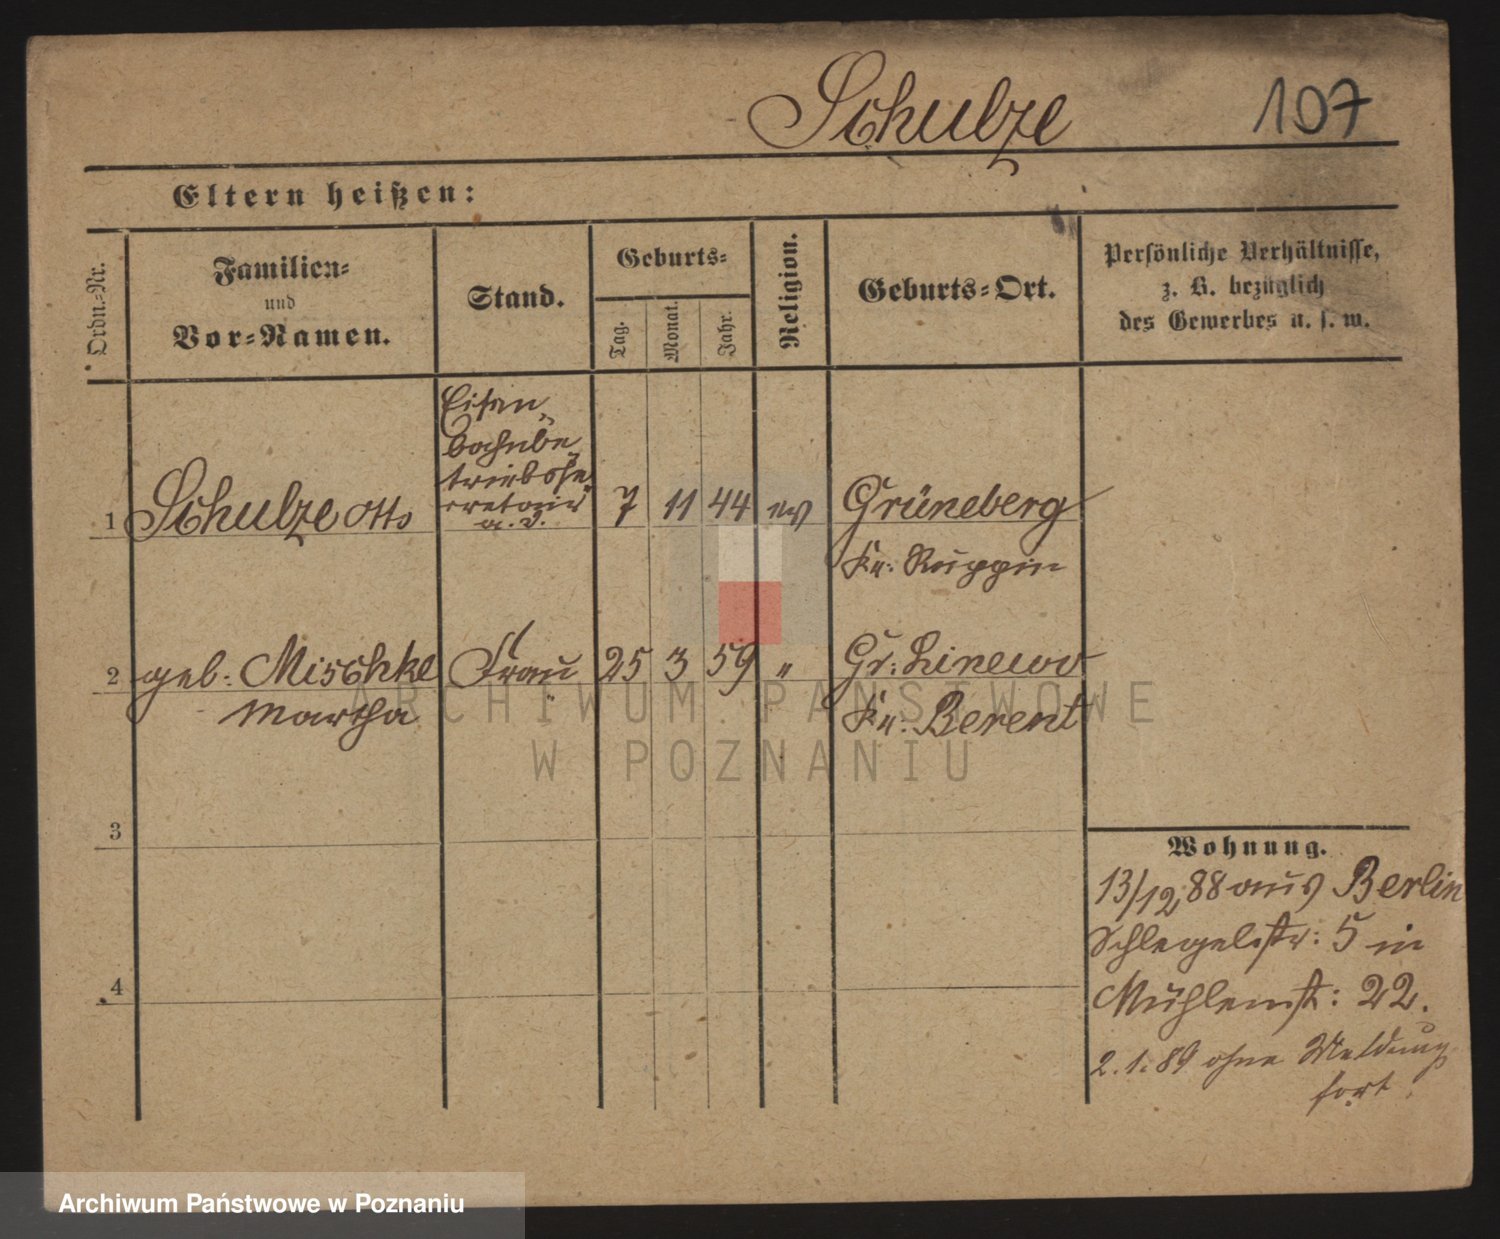 Schulze 107
Eltern heißen:
Ordn.=Nr.
Familien=
und
Vor=Namen.
Stand.
Geburts=
Tag.
Monat.
Jahr.
Religion.
Geburts=Ort.
Persönliche Verhältnisse,
z. B. bezüglich
des Gewerbes u. s. w.
Eisen
bahnbe
triebsse
kretair
a. D.
1 Schulze Otto 7 11 44 ev Grüneberg
Kr: Ruppin
2 geb: Mischke Frau 25 3 59 " Gr: Linewo
Martha Kr: Berent
3
4
Wohnung.
13/12 88 aus Berlin
Schlegelstr: 5 in
Mühlenst: 22.
2.1.89 ohne Meldung
fort.
ARCHIWUM PAŃSTWOWE
W POZNANIU
Archiwum Państwowe w Poznaniu